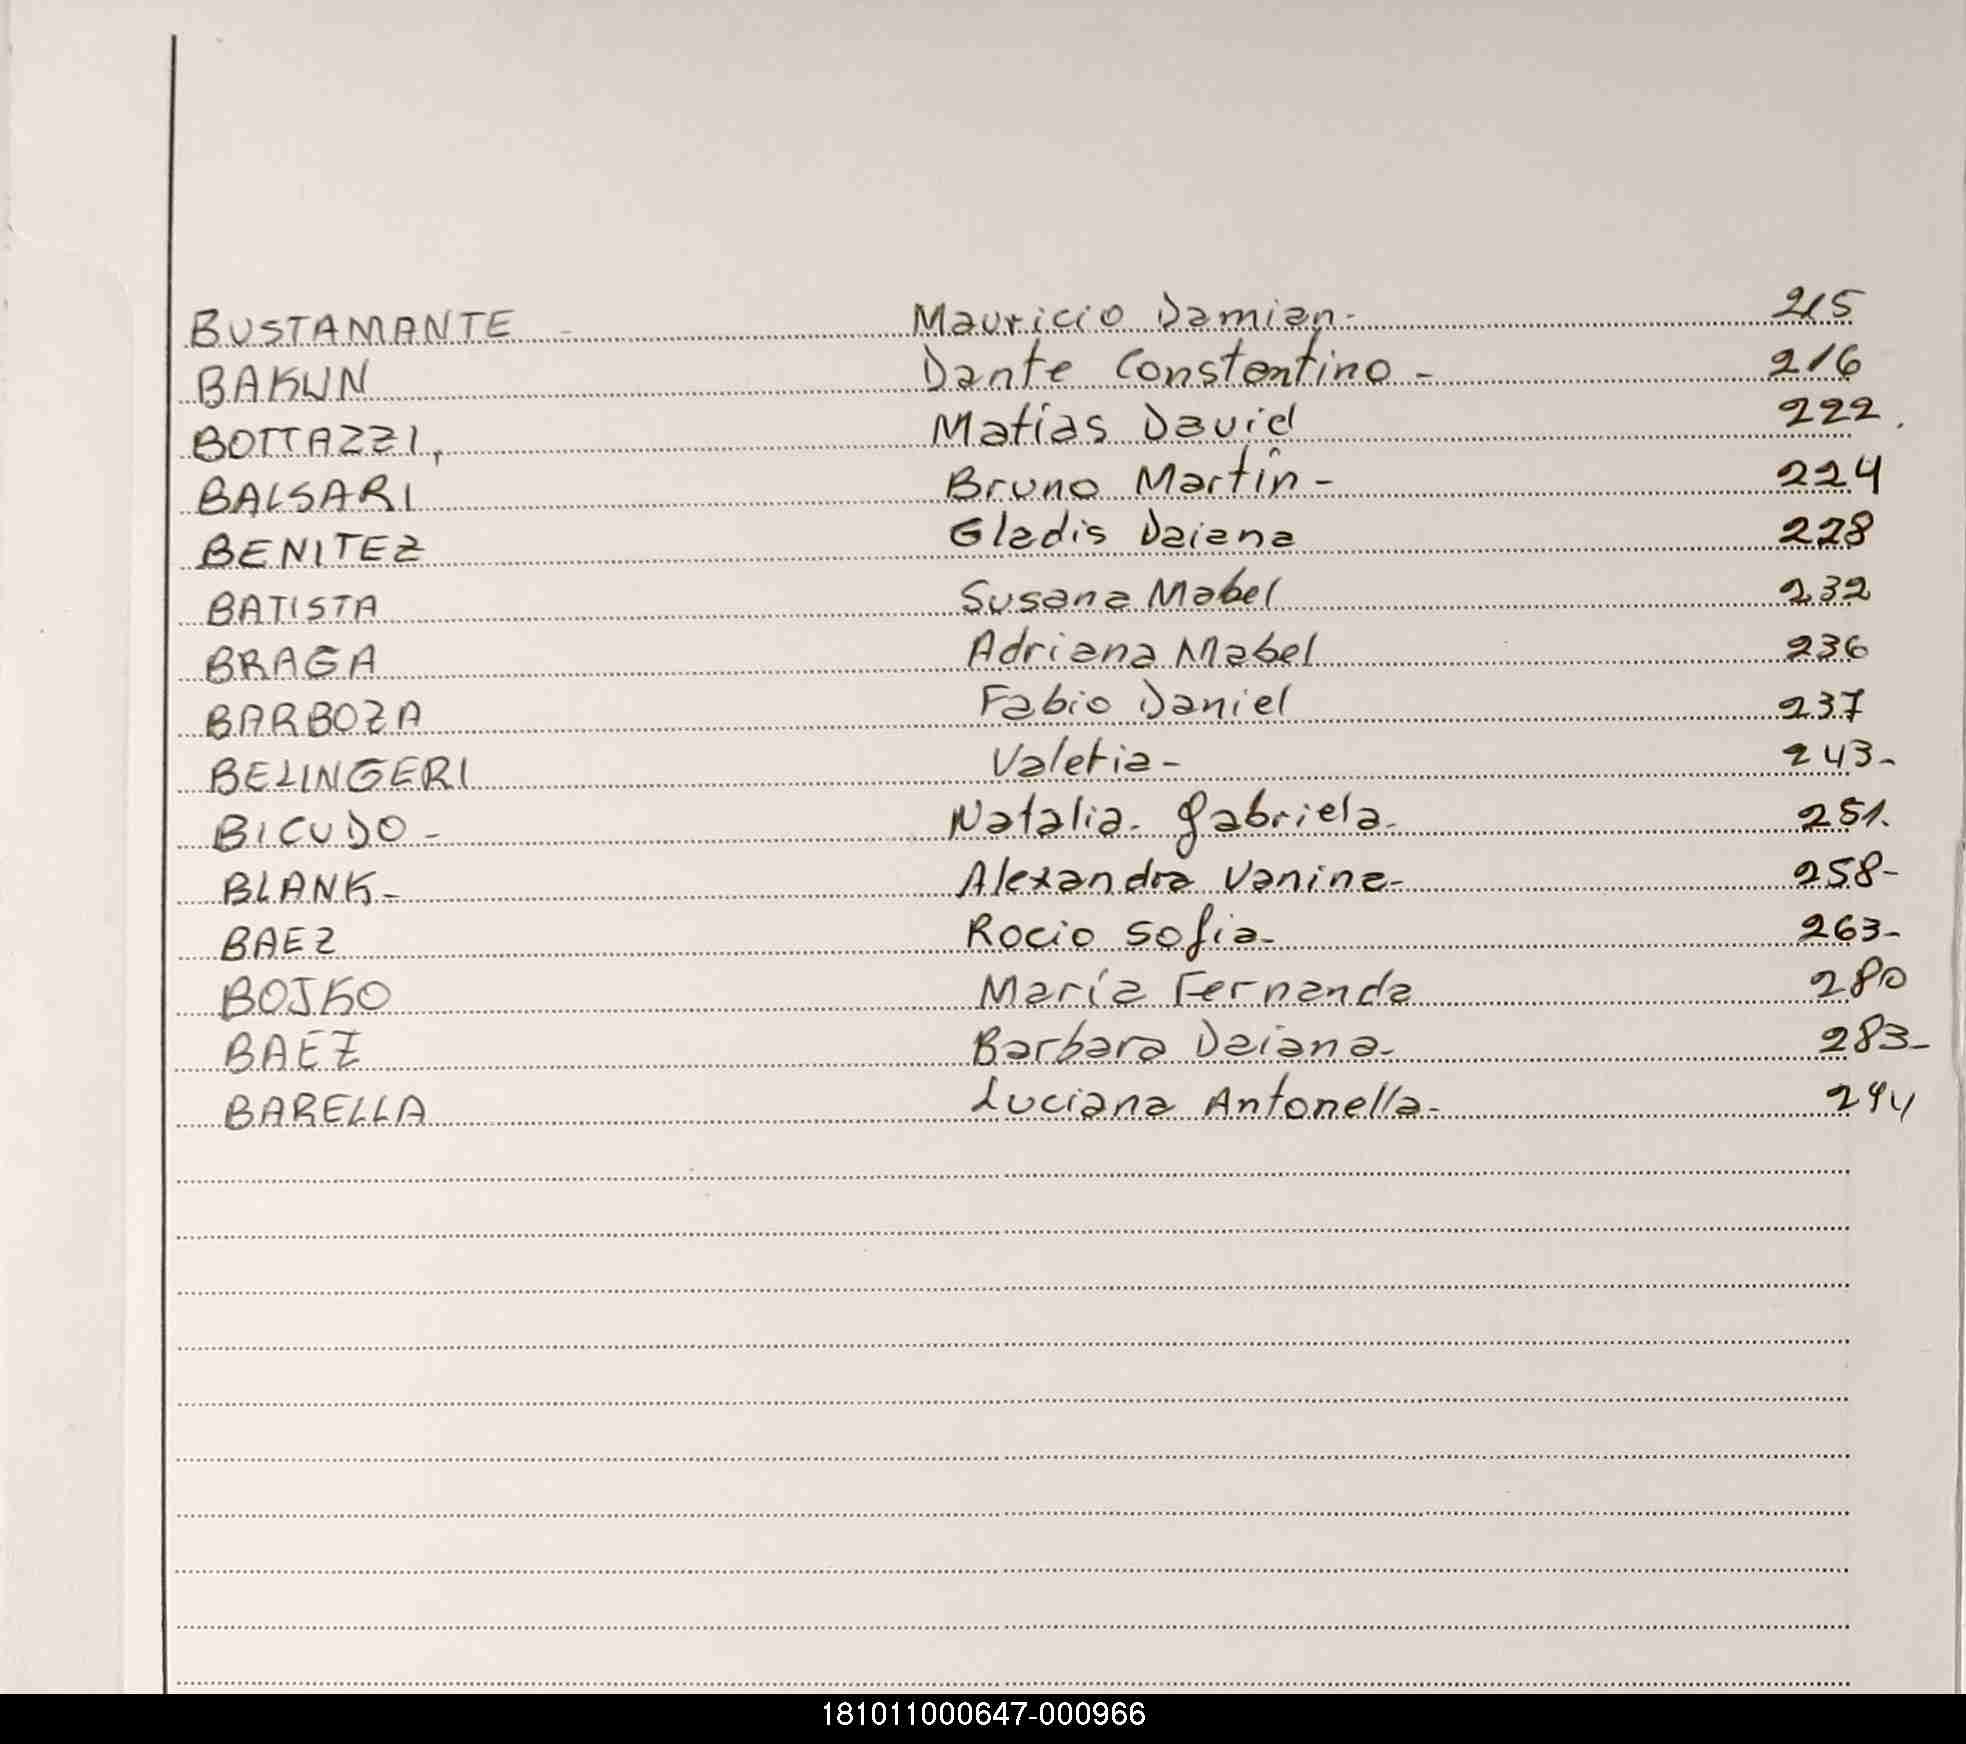 BUSTAMANTE - Mauricio Damian- 215
BAKUN Dante Constantino - 216
BOTTAZZI, Matías David 222.
BALSARI Bruno Martín - 224
BENITEZ Gladis Daiana 228
BATISTA Susana Mabel 232
BRAGA Adriana Mabel 236
BARBOZA Fabio Daniel 237
BELINGERI Valeria- 243-
BICUDO - Natalia- Gabriela- 251.
BLANK- Alexandra Vanina- 258-
BAEZ Rocio Sofia- 263-
BOJKO María Fernanda 280
BAEZ Barbara Daiana- 283-
BARELLA Luciana Antonella-
181011000647-000966